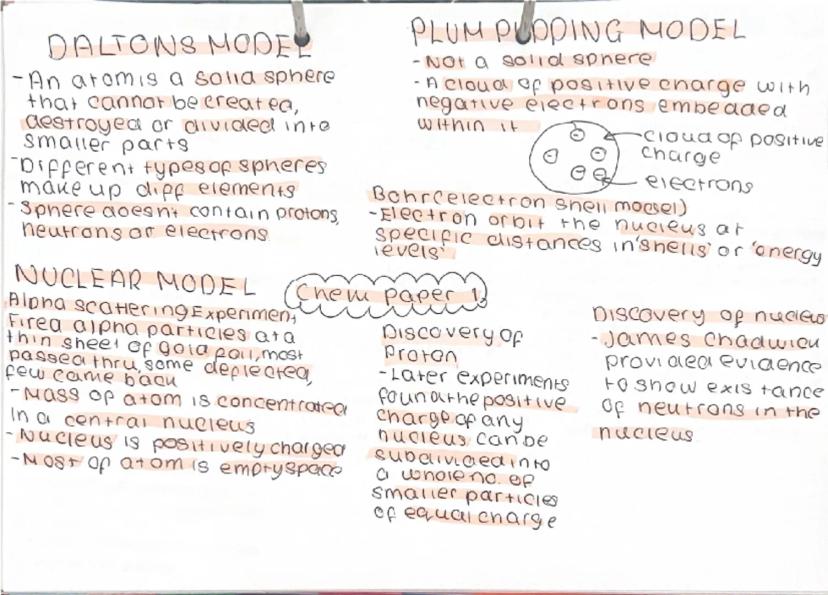 DALTONS MODEL
-An atom is a solid sphere
that cannot be created,
destroyed or divided into
smaller parts
-Different types of spheres
make up diff elements
-Sphere doesn't contain protons,
neutrons or electrons
PLUM PUDDING MODEL
-Not a solid sphere
-A cloud of positive charge with
negative electrons embedded
within it
cloud of positive
charge
electrons
Bohr(electron shell model)
-Electron orbit the nucleus at
specific distances in 'shells' or 'energy
levels'
NUCLEAR MODEL
Alpha scattering Experiment
Fired alpha particles at a
thin sheet of gold foil, most
passed thru, some deflected,
few came back
-Mass of atom is concentrated
in a central nucleus
-Nucleus is positively charged
-Most of atom is empty space
Chem paper 1
Discovery of
Proton
-Later experiments
found the positive
charge of any
nucleus can be
subdivided into
a whole no. of
smaller particles
of equal charge
Discovery of nucleus
-James Chadwick
provided evidence
to show existance
of neutrons in the
nucleus